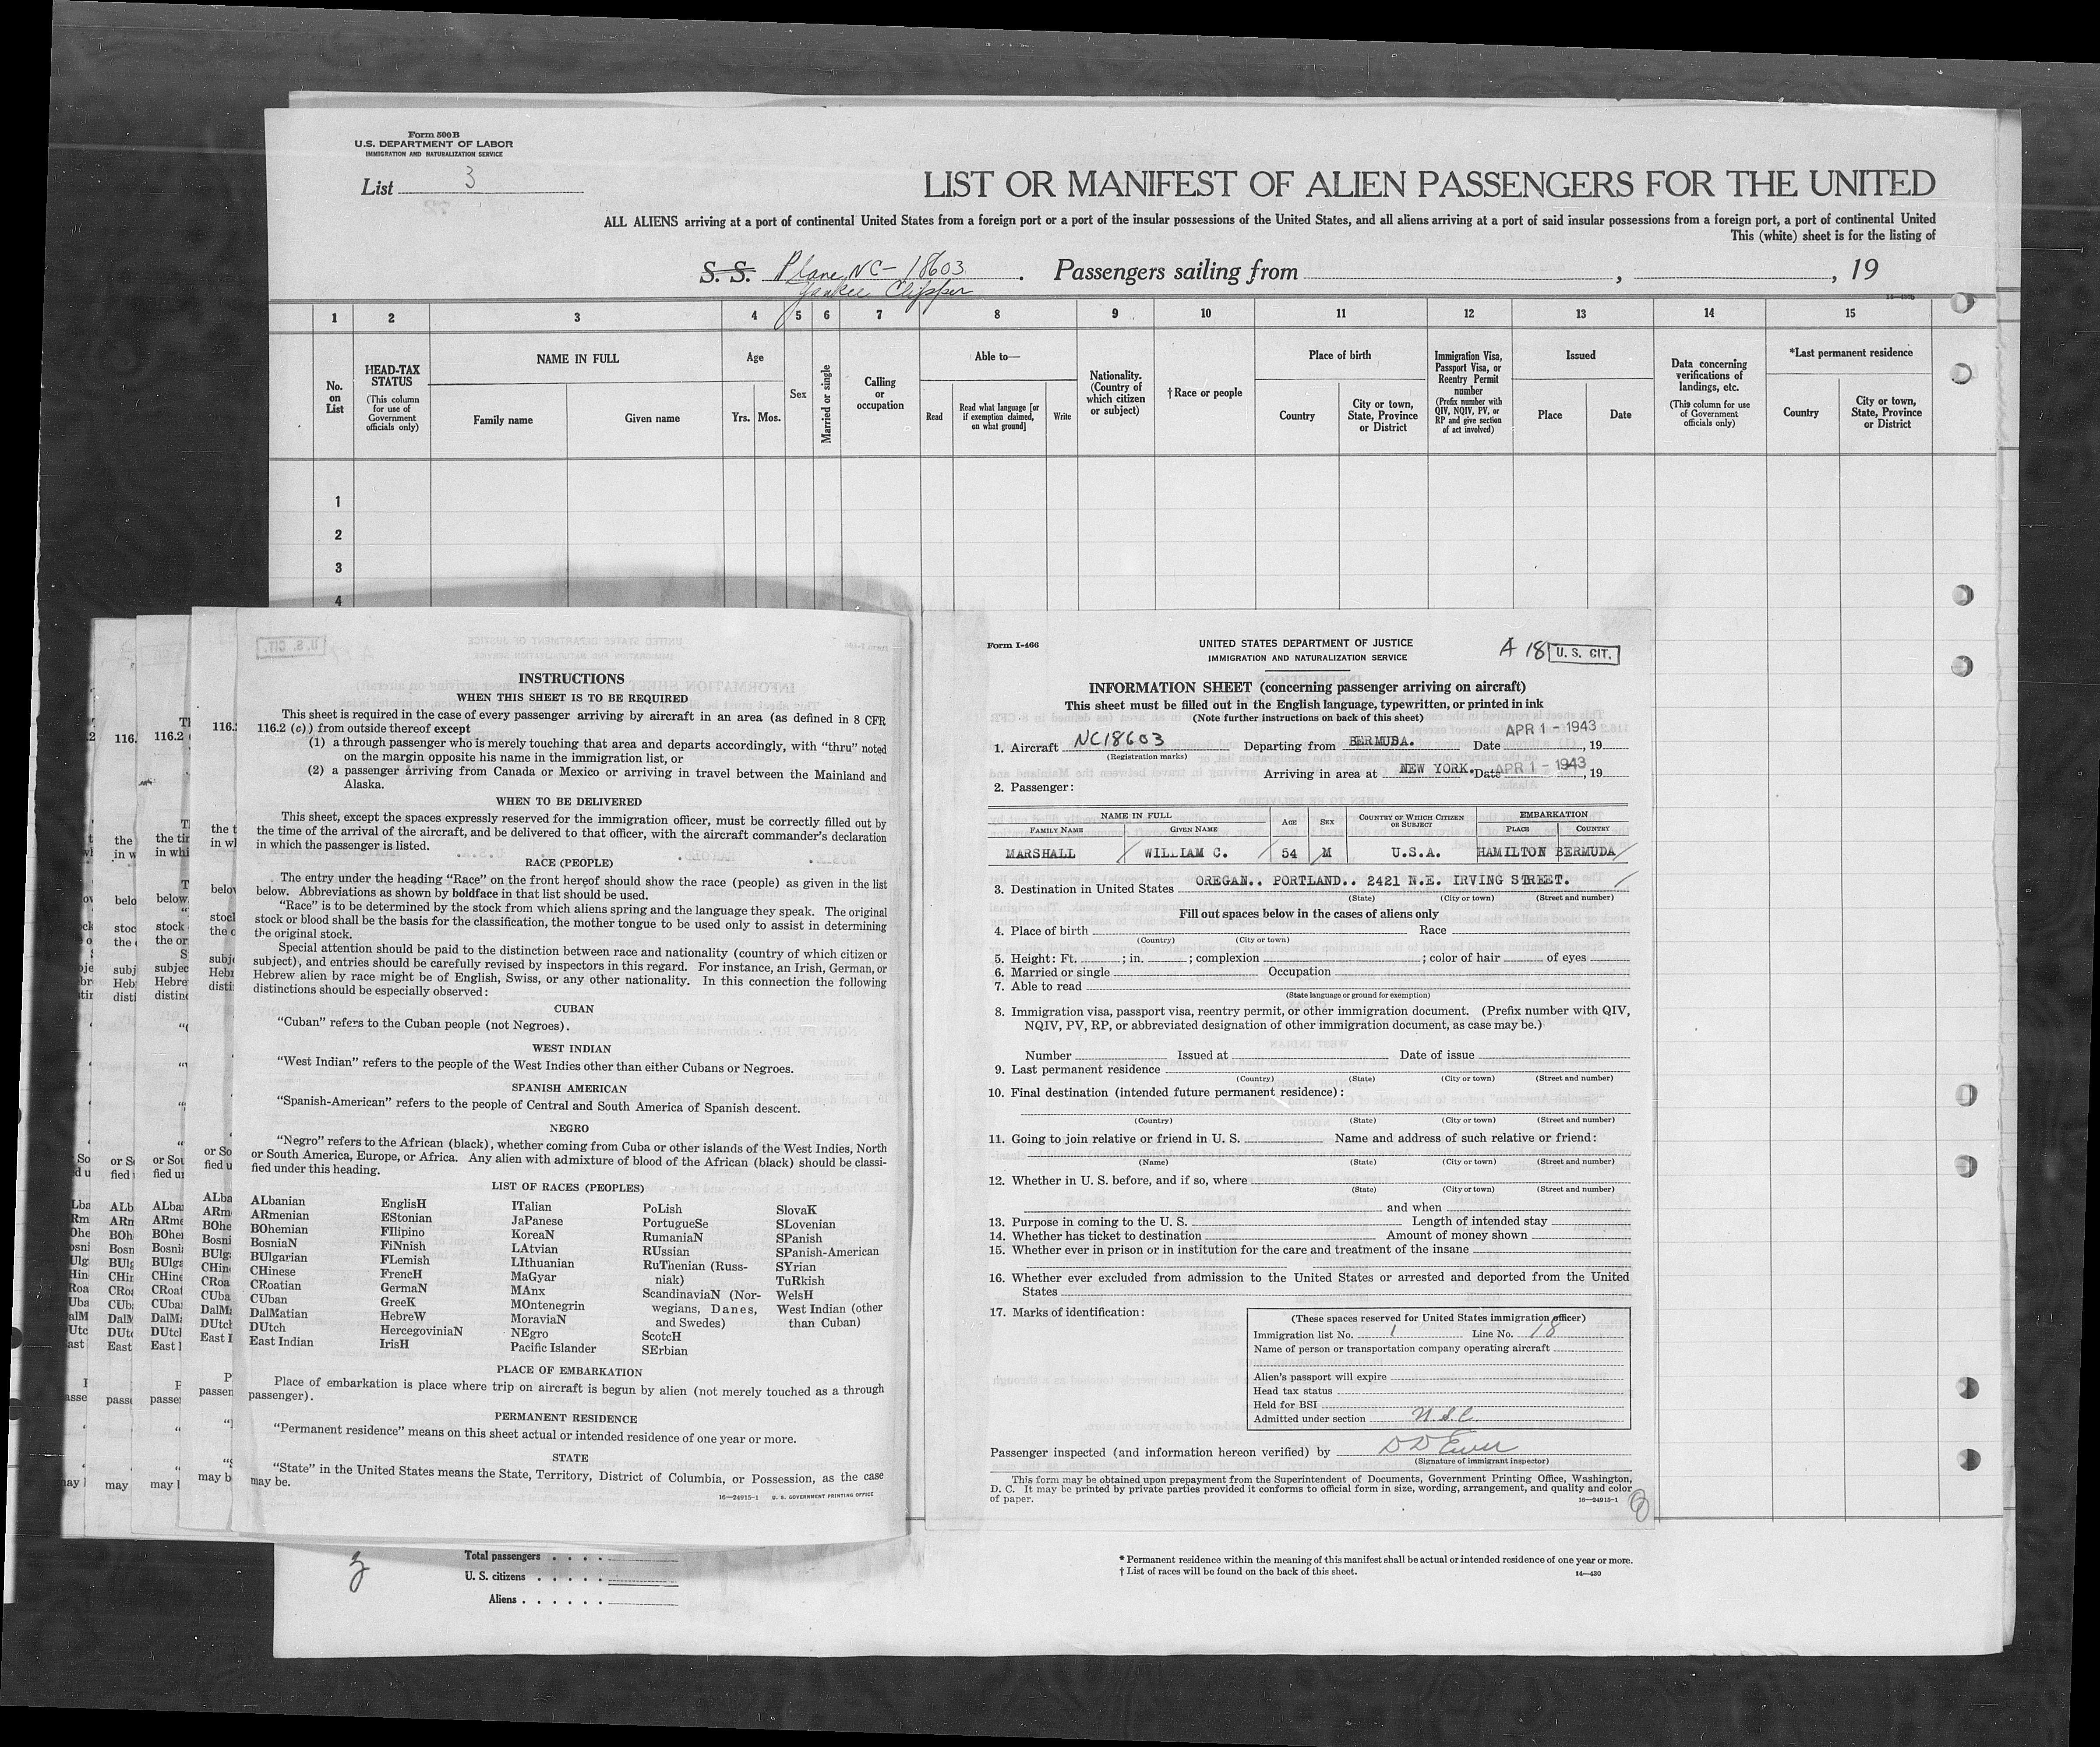 Form 500B
U.S. DEPARTMENT OF LABOR
IMMIGRATION AND NATURALIZATION SERVICE
List 3
LIST OR MANIFEST OF ALIEN PASSENGERS FOR THE UNITED
ALL ALIENS arriving at a port of continental United States from a foreign port or a port of the insular possessions of the United States, and all aliens arriving at a port of said insular possessions from a foreign port, a port of continental United
This (white) sheet is for the listing of
S. S. Plane NC-18603. Passengers sailing from , , 19
Yankee Clipper
1 2 3 4 5 6 7 8 9 10 11 12 13 14 15
No. on List
HEAD-TAX STATUS
(This column for use of Government officials only)
NAME IN FULL
Family name Given name
Age
Yrs. Mos.
Sex
Married or single
Calling or occupation
Able to—
Read Read what language [or if exemption claimed, on what ground] Write
Nationality. (Country of which citizen or subject)
†Race or people
Place of birth
Country City or town, State, Province or District
Immigration Visa, Passport Visa, or Reentry Permit number
(Prefix number with QIV, NQIV, PV, or RP and give section of act involved)
Issued
Place Date
Data concerning verifications of landings, etc.
(This column for use of Government officials only)
*Last permanent residence
Country City or town, State, Province or District
1
2
3
4
INSTRUCTIONS
WHEN THIS SHEET IS TO BE REQUIRED
This sheet is required in the case of every passenger arriving by aircraft in an area (as defined in 8 CFR
116.2 (c)) from outside thereof except
(1) a through passenger who is merely touching that area and departs accordingly, with "thru" noted
on the margin opposite his name in the immigration list, or
(2) a passenger arriving from Canada or Mexico or arriving in travel between the Mainland and
Alaska.
WHEN TO BE DELIVERED
This sheet, except the spaces expressly reserved for the immigration officer, must be correctly filled out by
the time of the arrival of the aircraft, and be delivered to that officer, with the aircraft commander's declaration
in which the passenger is listed.
RACE (PEOPLE)
The entry under the heading "Race" on the front hereof should show the race (people) as given in the list
below. Abbreviations as shown by boldface in that list should be used.
"Race" is to be determined by the stock from which aliens spring and the language they speak. The original
stock or blood shall be the basis for the classification, the mother tongue to be used only to assist in determining
the original stock.
Special attention should be paid to the distinction between race and nationality (country of which citizen or
subject), and entries should be carefully revised by inspectors in this regard. For instance, an Irish, German, or
Hebrew alien by race might be of English, Swiss, or any other nationality. In this connection the following
distinctions should be especially observed:
CUBAN
"Cuban" refers to the Cuban people (not Negroes).
WEST INDIAN
"West Indian" refers to the people of the West Indies other than either Cubans or Negroes.
SPANISH AMERICAN
"Spanish-American" refers to the people of Central and South America of Spanish descent.
NEGRO
"Negro" refers to the African (black), whether coming from Cuba or other islands of the West Indies, North
or South America, Europe, or Africa. Any alien with admixture of blood of the African (black) should be classi-
fied under this heading.
LIST OF RACES (PEOPLES)
ALbanian
ARmenian
BOhemian
BosniaN
BUlgarian
CHinese
CRoatian
CUban
DalMatian
DUtch
East Indian
EnglisH
EStonian
FIlipino
FiNnish
FLemish
FrencH
GermaN
GreeK
HebreW
HercegoviniaN
IrisH
ITalian
JaPanese
KoreaN
LAtvian
LIthuanian
MaGyar
MAnx
MOntenegrin
MoraviaN
NEgro
Pacific Islander
PoLish
PortugueSe
RumaniaN
RUssian
RuThenian (Russ-
niak)
ScandinaviaN (Nor-
wegians, Danes,
and Swedes)
ScotcH
SErbian
SlovaK
SLovenian
SPanish
SPanish-American
SYrian
TuRkish
WelsH
West Indian (other
than Cuban)
PLACE OF EMBARKATION
Place of embarkation is place where trip on aircraft is begun by alien (not merely touched as a through
passenger).
PERMANENT RESIDENCE
"Permanent residence" means on this sheet actual or intended residence of one year or more.
STATE
"State" in the United States means the State, Territory, District of Columbia, or Possession, as the case
may be.
16—24915-1 U. S. GOVERNMENT PRINTING OFFICE
Form I-466
UNITED STATES DEPARTMENT OF JUSTICE
IMMIGRATION AND NATURALIZATION SERVICE
A 18 U. S. CIT.
INFORMATION SHEET (concerning passenger arriving on aircraft)
This sheet must be filled out in the English language, typewritten, or printed in ink
(Note further instructions on back of this sheet)
1. Aircraft NC18603 Departing from BERMUDA. Date APR 1 - 1943, 19
(Registration marks)
Arriving in area at NEW YORK. Date APR 1 - 1943, 19
2. Passenger:
NAME IN FULL AGE SEX COUNTRY OF WHICH CITIZEN OR SUBJECT EMBARKATION
FAMILY NAME GIVEN NAME PLACE COUNTRY
MARSHALL WILLIAM C. 54 M U.S.A. HAMILTON BERMUDA
3. Destination in United States OREGAN.. PORTLAND.. 2421 N.E. IRVING STREET.
(State) (City or town) (Street and number)
Fill out spaces below in the cases of aliens only
4. Place of birth Race
(Country) (City or town)
5. Height: Ft. ; in. ; complexion ; color of hair of eyes
6. Married or single Occupation
7. Able to read
(State language or ground for exemption)
8. Immigration visa, passport visa, reentry permit, or other immigration document. (Prefix number with QIV,
NQIV, PV, RP, or abbreviated designation of other immigration document, as case may be.)
Number Issued at Date of issue
9. Last permanent residence
(Country) (State) (City or town) (Street and number)
10. Final destination (intended future permanent residence):
(Country) (State) (City or town) (Street and number)
11. Going to join relative or friend in U. S. Name and address of such relative or friend:
(Name) (State) (City or town) (Street and number)
12. Whether in U. S. before, and if so, where
(State) (City or town) (Street and number)
and when
13. Purpose in coming to the U. S. Length of intended stay
14. Whether has ticket to destination Amount of money shown
15. Whether ever in prison or in institution for the care and treatment of the insane
16. Whether ever excluded from admission to the United States or arrested and deported from the United
States
17. Marks of identification:
(These spaces reserved for United States immigration officer)
Immigration list No. 1 Line No. 18
Name of person or transportation company operating aircraft
Alien's passport will expire
Head tax status
Held for BSI
Admitted under section U.S.C.
Passenger inspected (and information hereon verified) by
(Signature of immigrant inspector)
This form may be obtained upon prepayment from the Superintendent of Documents, Government Printing Office, Washington,
D. C. It may be printed by private parties provided it conforms to official form in size, wording, arrangement, and quality and color
of paper.
16—24915-1
Total passengers
U. S. citizens
Aliens
* Permanent residence within the meaning of this manifest shall be actual or intended residence of one year or more.
† List of races will be found on the back of this sheet.
14—430